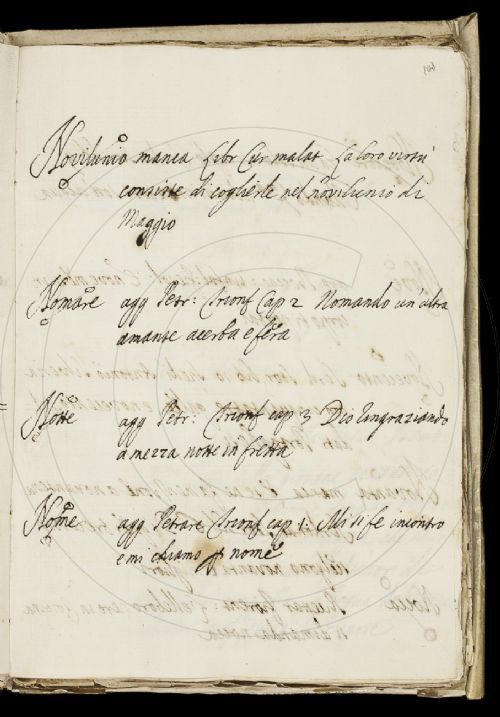 Novilunio manca Libr Cur malat La loro virtù
consiste di coglierle nel novilunio di
Maggio
Nomare agg Petr: Trionf Cap 2 Nomando un'altra
amante acerba e fera
Notte agg Petr: Trionf cap 3 Dio ringraziando
a mezza notte in fretta
Nome agg Petrarc Trionf cap 1: Mi si fe incontro
e mi chiamo p nome